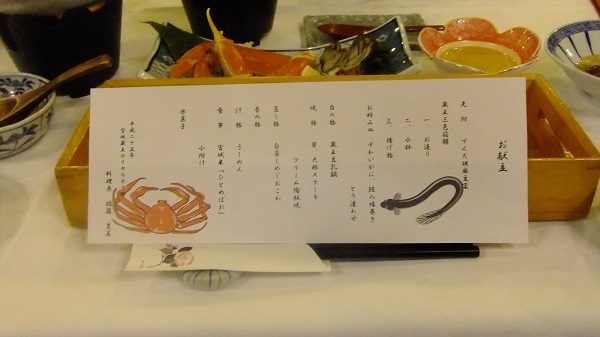 お献立
先附　ずんだ胡麻豆腐
蔵王三色前膳
一、お造り
二、小鉢
三、揚げ物
お好み皿　ずわいがに、鰻八幡巻き
とり遣わせ
台の物　蔵王乳鍋
焼物　茄、大根ステーキ
クリーム陶板焼
蒸し物　白蒸しめしおこわ
香の物
汁物　うーめん
食事　宮城米「ひとめぼれ」
小附け
水菓子
平成二十五年
宮城蔵王ロイヤルホテル
料理長　佐藤